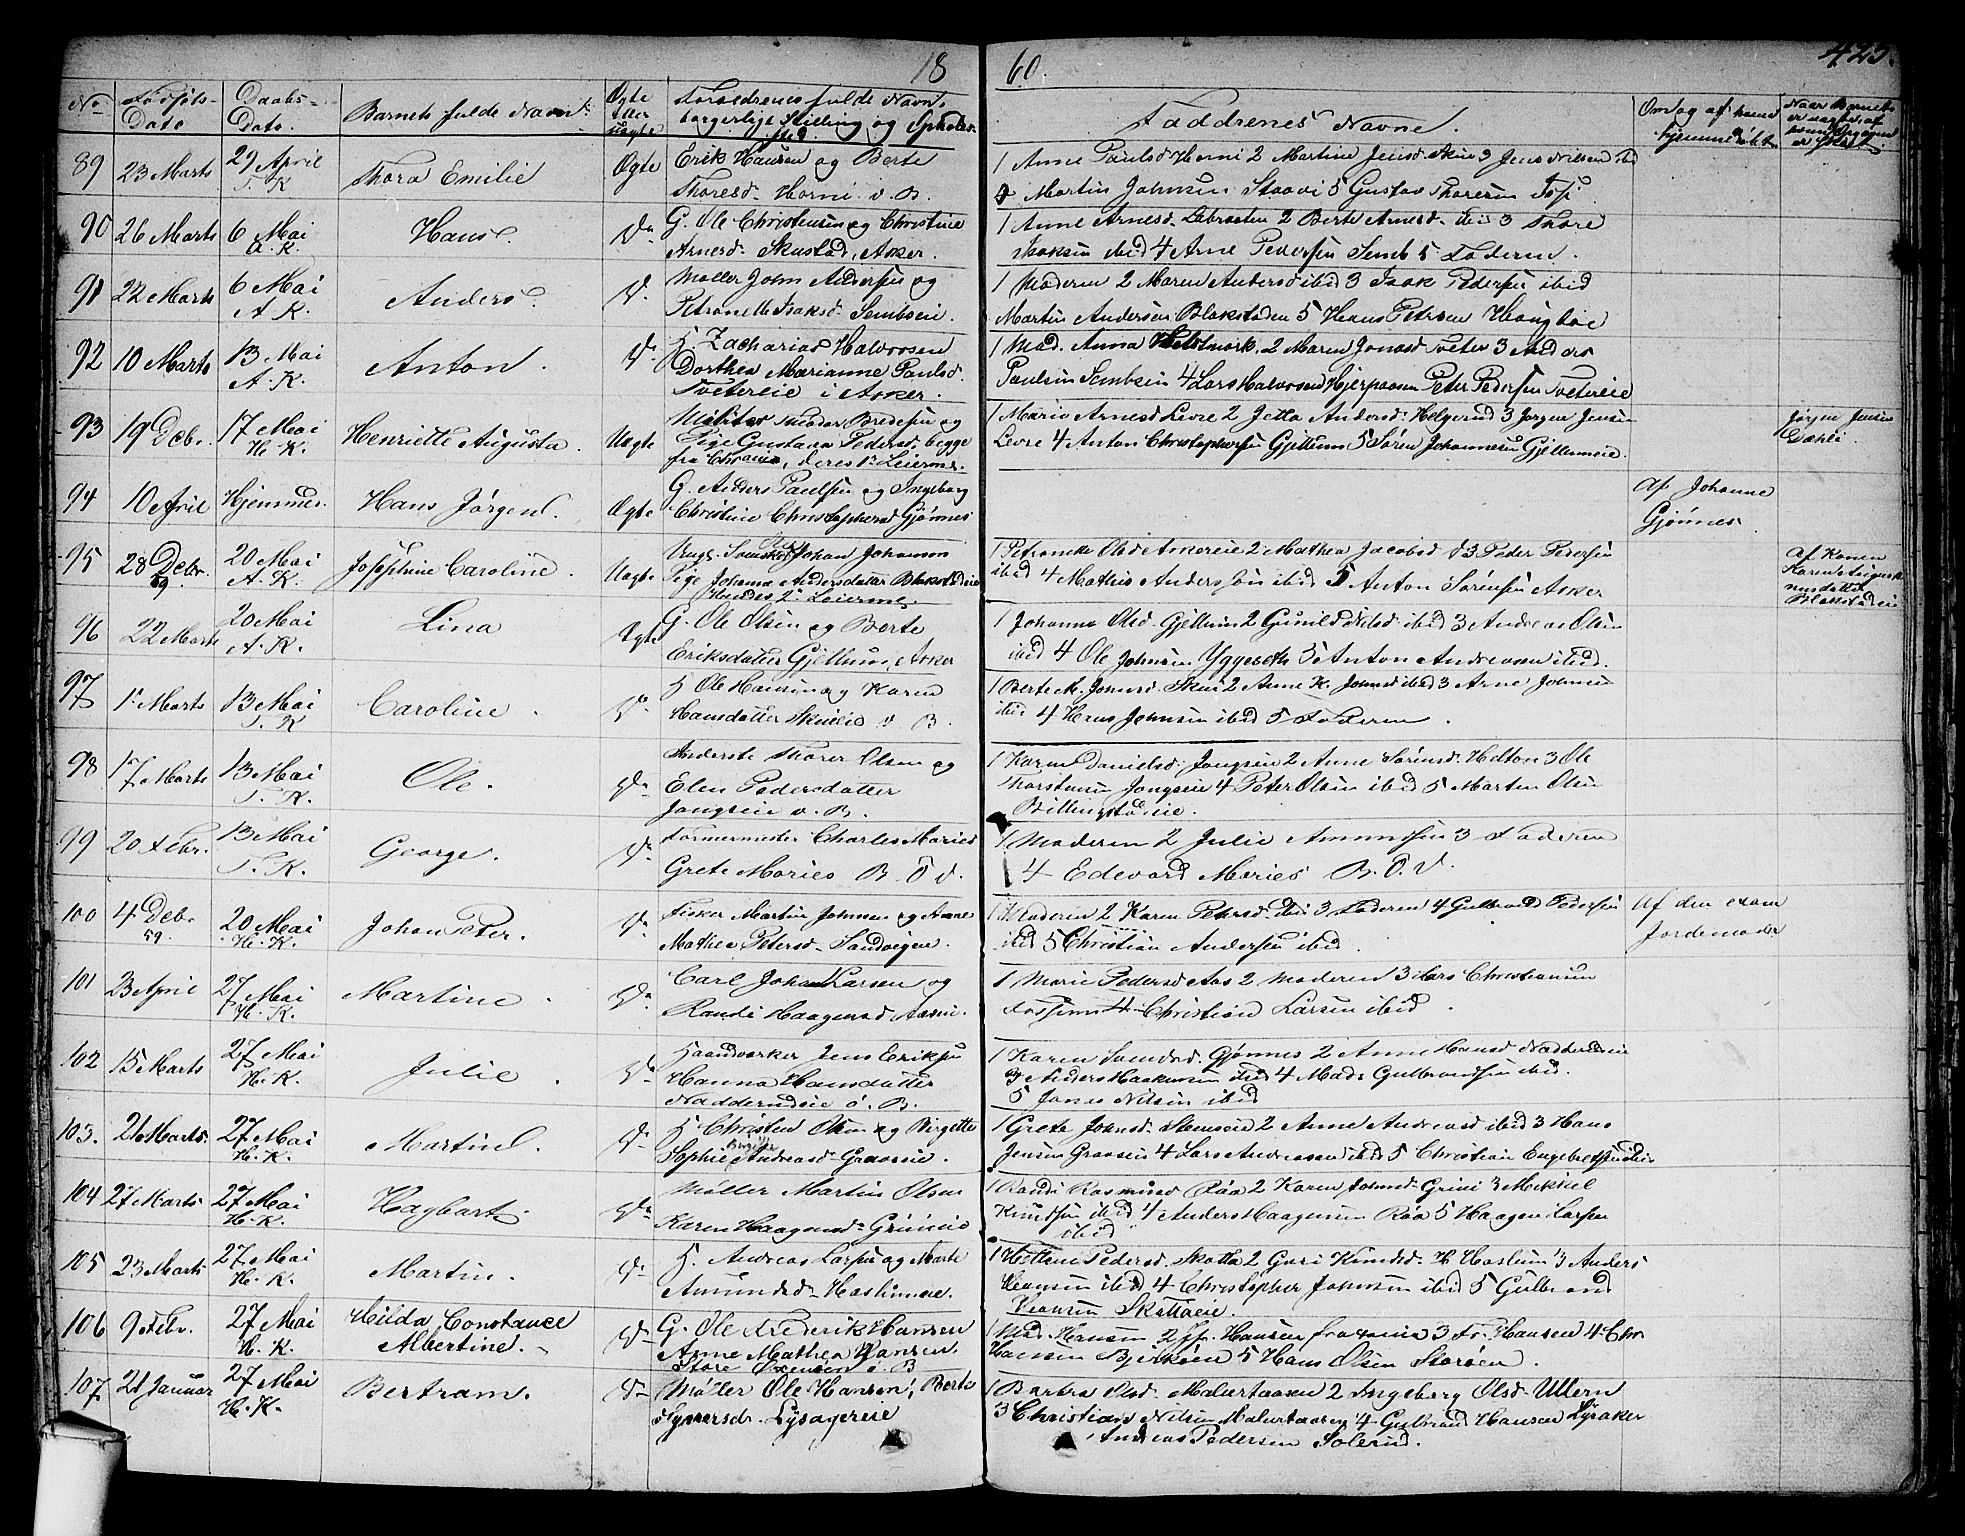 18 60. 425.
No Fødsels- Dato Daabs- Dato. Barnets fulde Navn. Ægte eller uægte Forældrenes fulde Navn, borgerlige Stilling og Opholdssted. Faddrenes Navne. Om og af hvem hjemmedøbt
89 23 Marts 29 April T. K Thora Emilie Ægte Erik Hansen og Berte
Thoresd. Horni v. B.
1 Anne Paulsd Horni 2 Martine Jensd. Skui 3 Jens Nilsen ibd
4 Martin Johnsen Staavi 5 Gustav Thoresen
90 26 Marts 6 Mai A. K. Hans. Do G. Ole Christensen og Christine
Arnesd. Skustad, Asker.
1 Anne Arnesd. Lebraaten 2 Berte Arnesd. ibid 3 Thore
Isaksen ibid 4 Arne Pedersen Semb 5 Faderen.
91 22 Marts 6 Mai A. K. Anders. D. Møller John Andersen og
Petronelle Isaksd. Sembseie.
1 Moderen 2 Maren Andersd ibid 3 Isak Pedersen ibid
Martin Andersen Blakstaden 5 Hans Petersen
92 10 Marts 13 Mai A. K. Anton. Do H. Zacharias Halvorsen
Dorthea Marianne Paulsd.
Tvetereie i Asker.
1 Mad. Anna 2 Maren Jonasd. Tveter 3 Anders
Paulsen Sembseie 4 Lars Halvorsen Peter Pedersen Tvetereie
93 19 Debr. 17 Mai H. K. Henriette Augusta. Uægte Militær Bredesen og
Pige Gustava Pedersd. begge
fra Chrania, deres 1ste Leierm.
1 Marie Arnesd Levre 2 Jetta Andersd. Helgerud 3 Jørgen Jensen
Levre 4 Anton Christophersen Gjellum 5 Søren Johannesen Gjellumeie.
Jørgen Jensen
Dæhli.
94 10 April Hjemmed. Hans Jørgen. Ægte G. Anders Paulsen og Ingeborg
Christine Christophersd Gjønnes
Af Johanne
Gjønnes.
95 28 Debr. 59 20 Mai A. K. Josephine Caroline. Uægte Ungk. Svensker Johan Johanson
Pige Johanne Andersdatter Blakstadeie
Hendes 2 Leierm.
1 Petronelle Olsd Askereie 2 Mathea Jacobsd 3 Peter Petersen
ibid 4 Mathis Anderssøn ibid 5 Anton Sørensen Asker
Af Konen
Karen
Blakstadeie
96 22 Marts 20 Mai A. K. Lina Ægte G. Ole Olsen og Berte
Eriksdatter Gjellum, Asker
1 Johanne Olsd. Gjellum 2 Gunild Nilsd. ibid 3 Andreas Olsen
ibid 4 Ole Johnsen Yggeseth 5 Anton Andreasen ibid.
97 1ste Marts 13 Mai T. K Caroline. Do H Ole Hansen og Karen
Hansdatter Skuieie v B.
1 Berte M. Johnsd. Skui 2 Anne K. Johnsd ibid 3 Arne Johnsen
ibid 4 Hans Johnsen ibid 5 Faderen.
98 17 Marts 13 Mai T. K. Ole. Do Inderste Thorer Olsen og
Elen Pedersdatter
Jongseie v. B.
1 Karen Danielsd. Jongseie 2 Anne Sørensd. Helton 3 Ole
Thorstensen Jongseie 4 Peter Olsen ibid 5 Morten Olsen
Billingstadeie.
99 20 Febr. 13 Mai T. K. George. Do Formermester Charles Mories
Grete Mories B. O V.
1 Moderen 2 Julie Amundsen 3 Faderen
4 Edevard Mories B. O. V.
100 4 Debr 59. 20 Mai H. K. Johan Peter. Do Fisker Martin Johnsen og Anne
Mathea Petersd. Sandvigen.
1 Moderen 2 Karen Petersd. ibid 3 Faderen 4 Gulbrand Pedersen
ibid 5 Christian Andersen ibid.
Af den exam
Jordemoder
101 23 April 27 Mai H. K. Martine. Do Carl Johan Larsen og
Randi Haagensd
1 Marie Pedersd Aas 2 Moderen 3 Lars Christiansen
Fossum 4 Christian Larsen ibid.
102 15 Marts 27 Mai H. K. Julie. Do Haandværker Jens Eriksen
Hanna Hansdatter
Nadderudeie ø. B.
1 Karen Gjønnes 2 Anne Hansd Nadderudeie
3 Anders Haakensen ibid 4 Mads Gulbrandsen ibid.
5 Jonas Nilsen ibid
103. 21 Marts. 27 Mai H. K. Martin. Do H Christen Olsen og Birgette
Sophie Andreasd. Gravseie.
1 Grete Johnsd. 2 Anne Andreasd ibid 3 Hans
Jensen Gravseie 4 Lars Andreasen ibid 5 Christian Engebretsen ibid
104 27 Marts 27 Mai H. K. Hagbart. Do Møller Martin Olsen
Karen Haagensd. Grinieie
1 Randi Rasmusd Røa 2 Karen Johnsd. Grini 3 Mikkel
Knudsen ibid 4 Anders Haagensen Røa 5 Haagen Larsen
ibid
105 23 Marts 27 Mai H. K. Martin. Do H. Andreas Larsen og Marte
Amundsd. Haslumeie.
1 Helene Pedersd. Skotta 2 Guri Knudsd. H Haslum 3 Anders
Hansen ibid 4 Christopher Johnsen ibid 5 Gulbrand
Hansen Skottaeie.
106 9 Febr. 27 Mai H. K. Hilda Constance
Albertine. Do G. Ole Frederik Hansen
Anne Mathea Hansen
Store ø. B
1 Mad. Hansen 2 Jf. Hansen 3 Fr. Hansen 4 Chr.
Hansen Bjerkøen 5 Hans Olsen Storøen.
107. 21 Januar 27 Mai H. K. Bertram. Do Møller Ole Hansen, Berte
Lysagereie
1 Barbra Olsd. Malurtaasen 2 Ingeborg Olsd. Ullern
3 Christian Nilsen Malurtaasen 4 Gulbrand Hansen Lysaker
Andreas Pedersen Solerud.